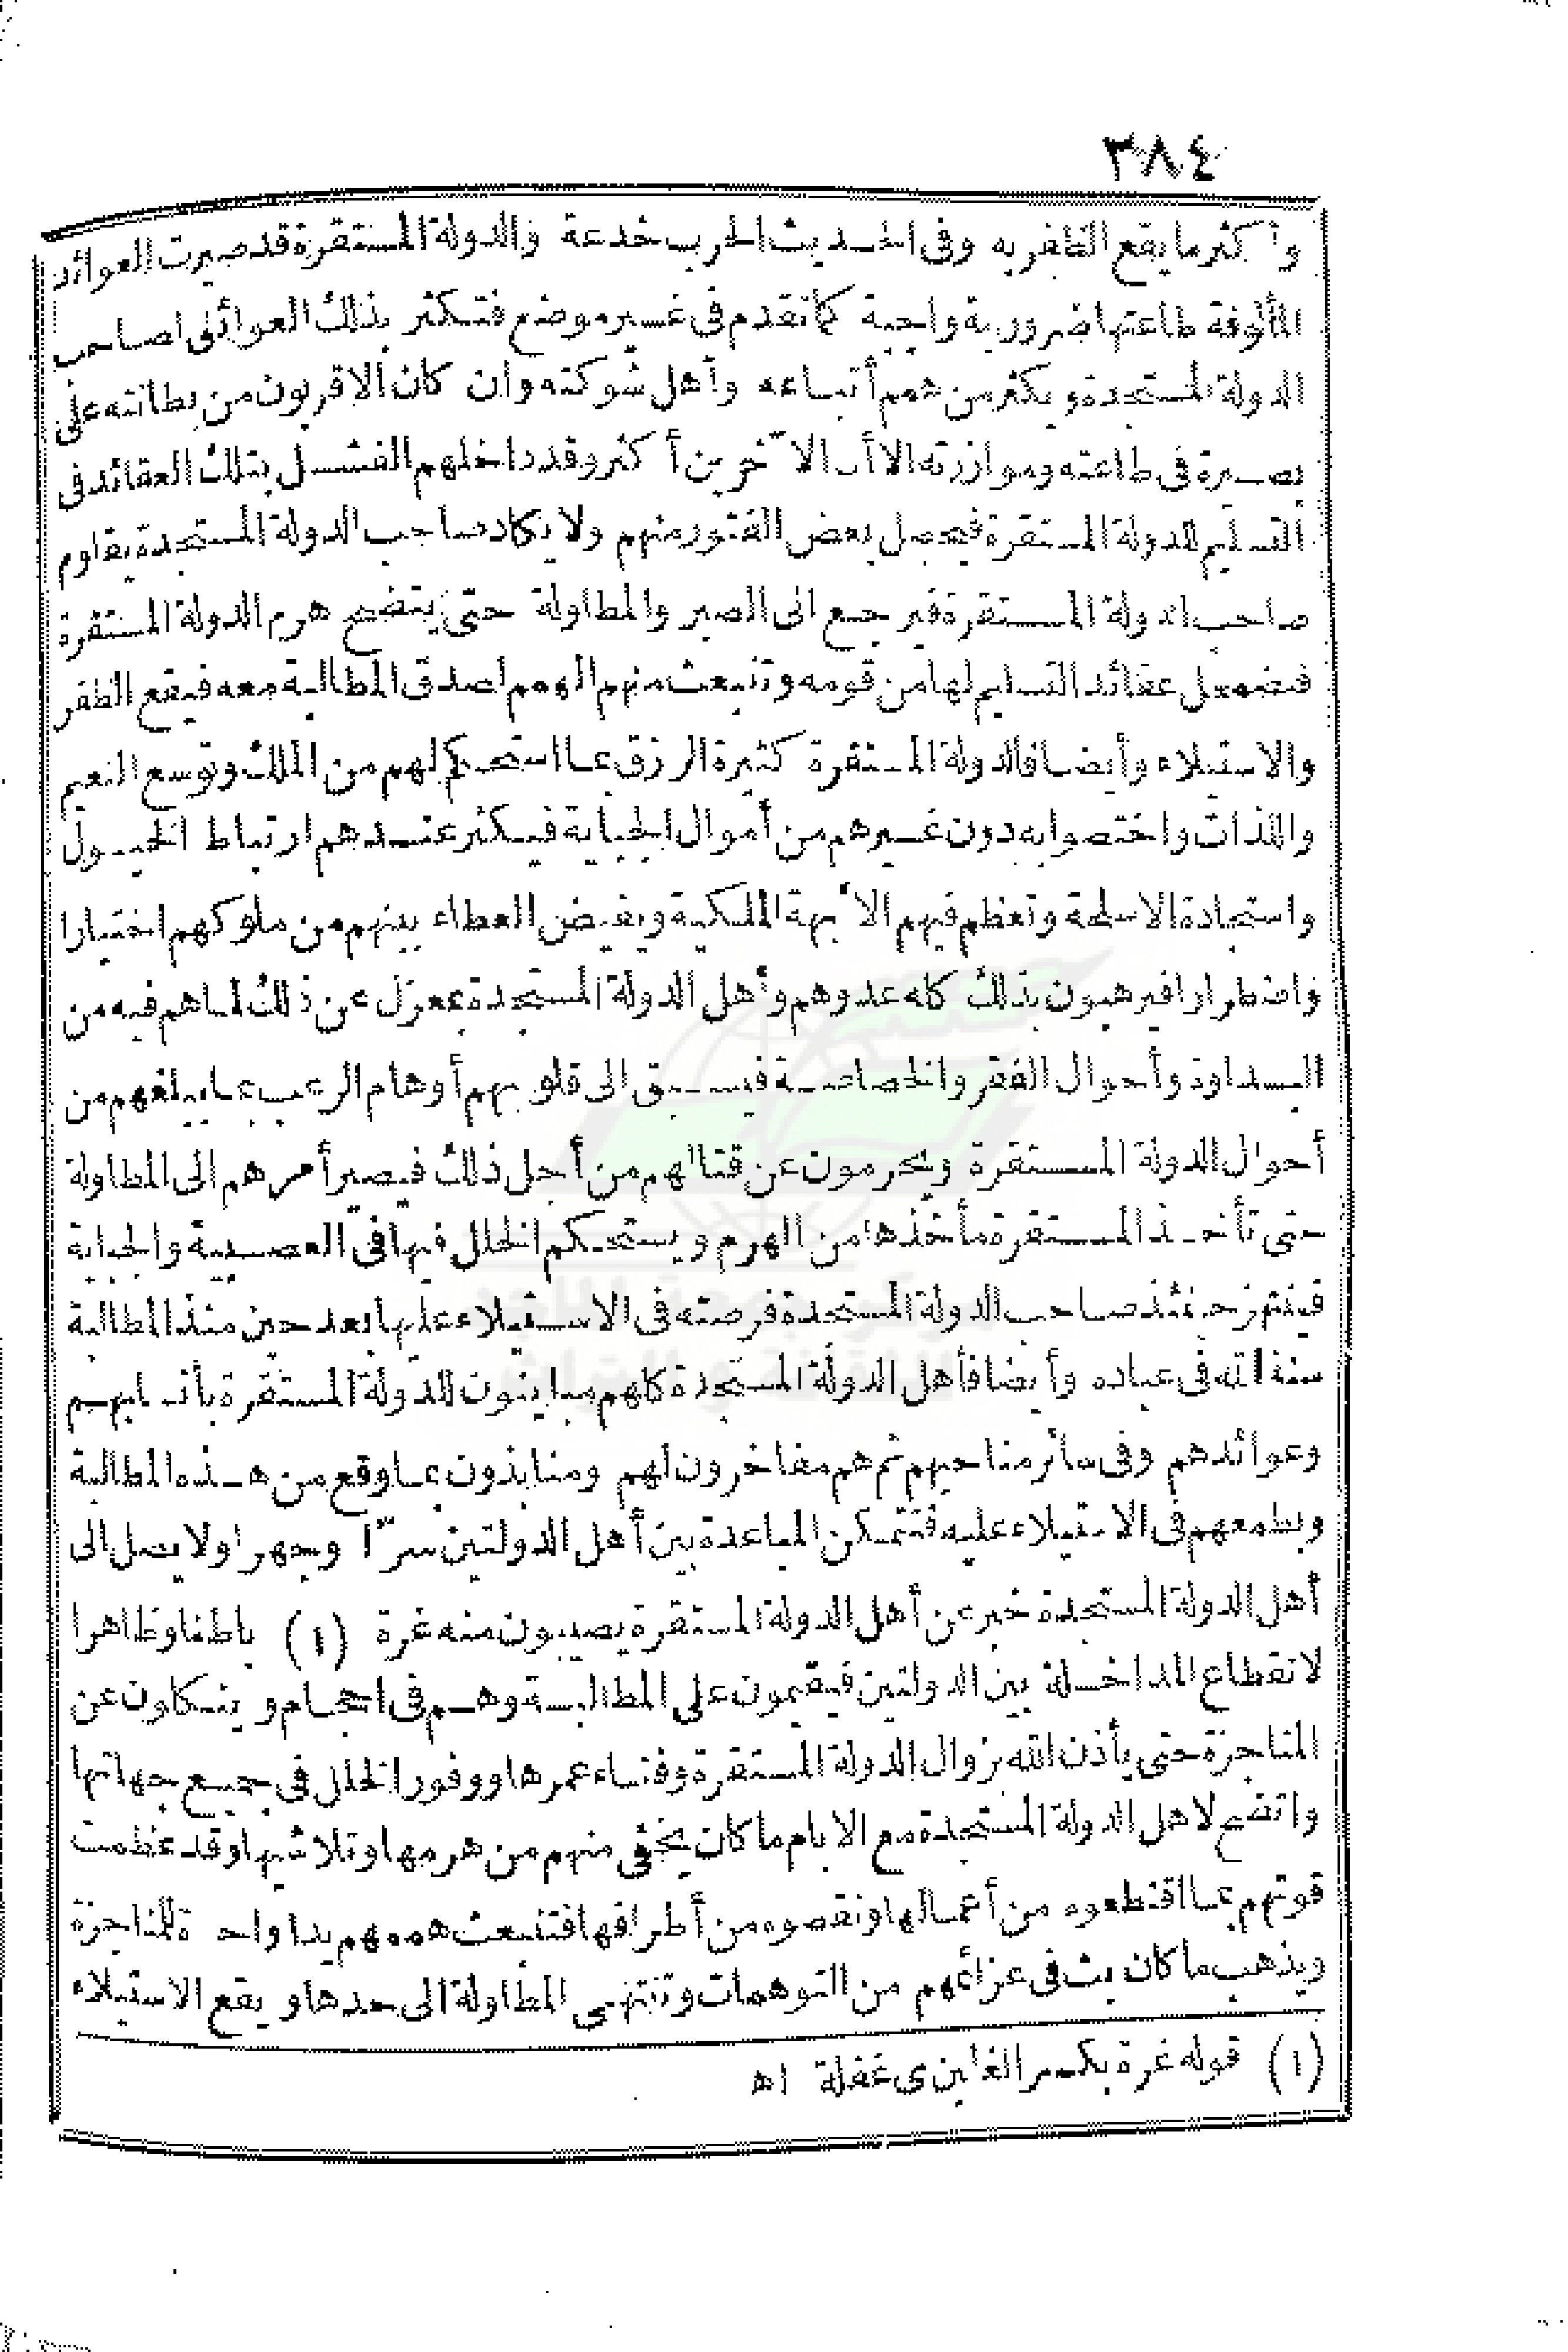 ٣٨٤
وأكثر ما يقع الظفر به وفى الحديث الحرب خدعة والدولة المستقرة قد صيرت العوائد
المألوفة طاعتها ضرورية واجبة كما تقدم فى غير موضع فتكثر بذلك العوائق لصاحب
الدولة المستجدة ويكثر من همم أتباعه وأهل شوكته وان كان الاقربون من بطانته على
بصيرة فى طاعته وموازرته الا أن الآخرين أكثر وقد داخلهم الفشل بتلك العقائد فى
التسليم للدولة المستقرة فيحصل بعض الفتور منهم ولا يكاد صاحب الدولة المستجدة يقاوم
صاحب الدولة المستقرة فيرجع الى الصبر والمطاولة حتى يتضح هرم الدولة المستقرة
فتضمحل عقائد التسليم لها من قومه وتنبعث منهم الهمم لصدق المطالبة معه فيقع الظفر
والاستيلاء وأيضا فالدولة المستقرة كثيرة الرزق بما استحكم لهم من الملك وتوسع النعيم
واللذات واختصوا به دون غيرهم من أموال الجباية فيكثر عندهم ارتباط الخيول
واستجادة الاسلحة وتعظم فيهم الابهة الملكية ويفيض العطاء بينهم من ملوكهم اختيارا
واضطرارا فيرهبون بذلك كله عدوهم وأهل الدولة المستجدة بمعزل عن ذلك لما هم فيه من
البداوة وأحوال الفقر والخصاصة فيسبق الى قلوبهم أوهام الرعب بما يبلغهم من
أحوال الدولة المستقرة ويحرمون عن قتالهم من أجل ذلك فيصير أمرهم الى المطاولة
حتى تأخذ المستقرة مأخذها من الهرم ويستحكم الخلل فيها فى العصبية والجباية
فينتهز حينئذ صاحب الدولة المستجدة فرصته فى الاستيلاء عليها بعد حين منذ المطالبة
سنة الله فى عباده وأيضا فأهل الدولة المستجدة كلهم مباينون للدولة المستقرة بأنسابهم
وعوائدهم وفى سائر مناحيهم ثم هم مفاخرون لهم ومنابذون بما وقع من هذه المطالبة
وبطمعهم فى الاستيلاء عليه فتتمكن المباعدة بين أهل الدولتين سرّا وجهرا ولا يصل الى
أهل الدولة المستجدة خبر عن أهل الدولة المستقرة يصيبون منه غرة (١) باطنا وظاهرا
لانقطاع المداخلة بين الدولتين فيقيمون على المطالبة وهم فى احجام وينكلون عن
المناجزة حتى يأذن الله بزوال الدولة المستقرة وفناء عمرها ووفور الخلل فى جميع جهاتها
واتضح لاهل الدولة المستجدة مع الايام ما كان يخفى منهم من هرمها وتلاشيها وقد عظمت
قوتهم بما اقتطعوه من أعمالها ونقصوه من أطرافها فتنبعث هممهم يدا واحدة للمناجزة
ويذهب ما كان بث فى عزائمهم من التوهمات وتنتهى المطاولة الى حدها ويقع الاستيلاء
(١) قوله غرة بكسر الغين أى غفلة اه